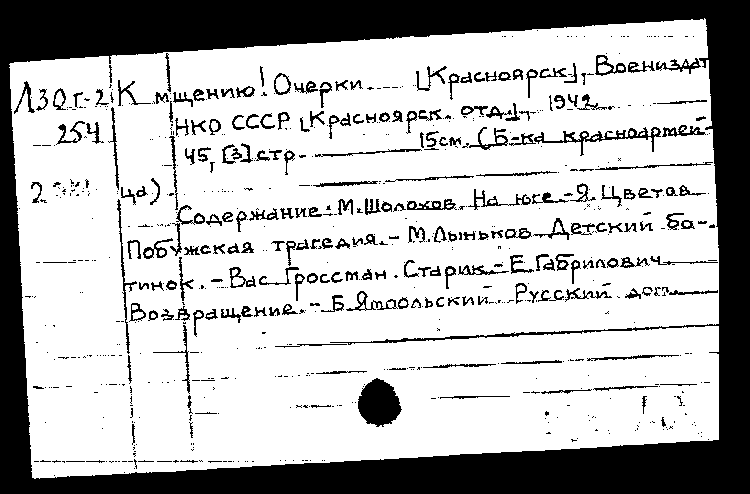 Л30г-2 К мщению! Очерки. [Красноярск], Воениздат
254 НКО СССР [Красноярск. отд.], 1942
45, [3] стр. 15см. (Б-ка красноармей-
ца).
Содержание: М.Шолохов. На юге.-Я.Цветов
Побужская трагедия.- М.Лыньков. Детский бо-
тинок.-Вас.Гроссман. Старик.-Е.Габрилович.
Возвращение.- Б.Ямпольский. Русский дом.